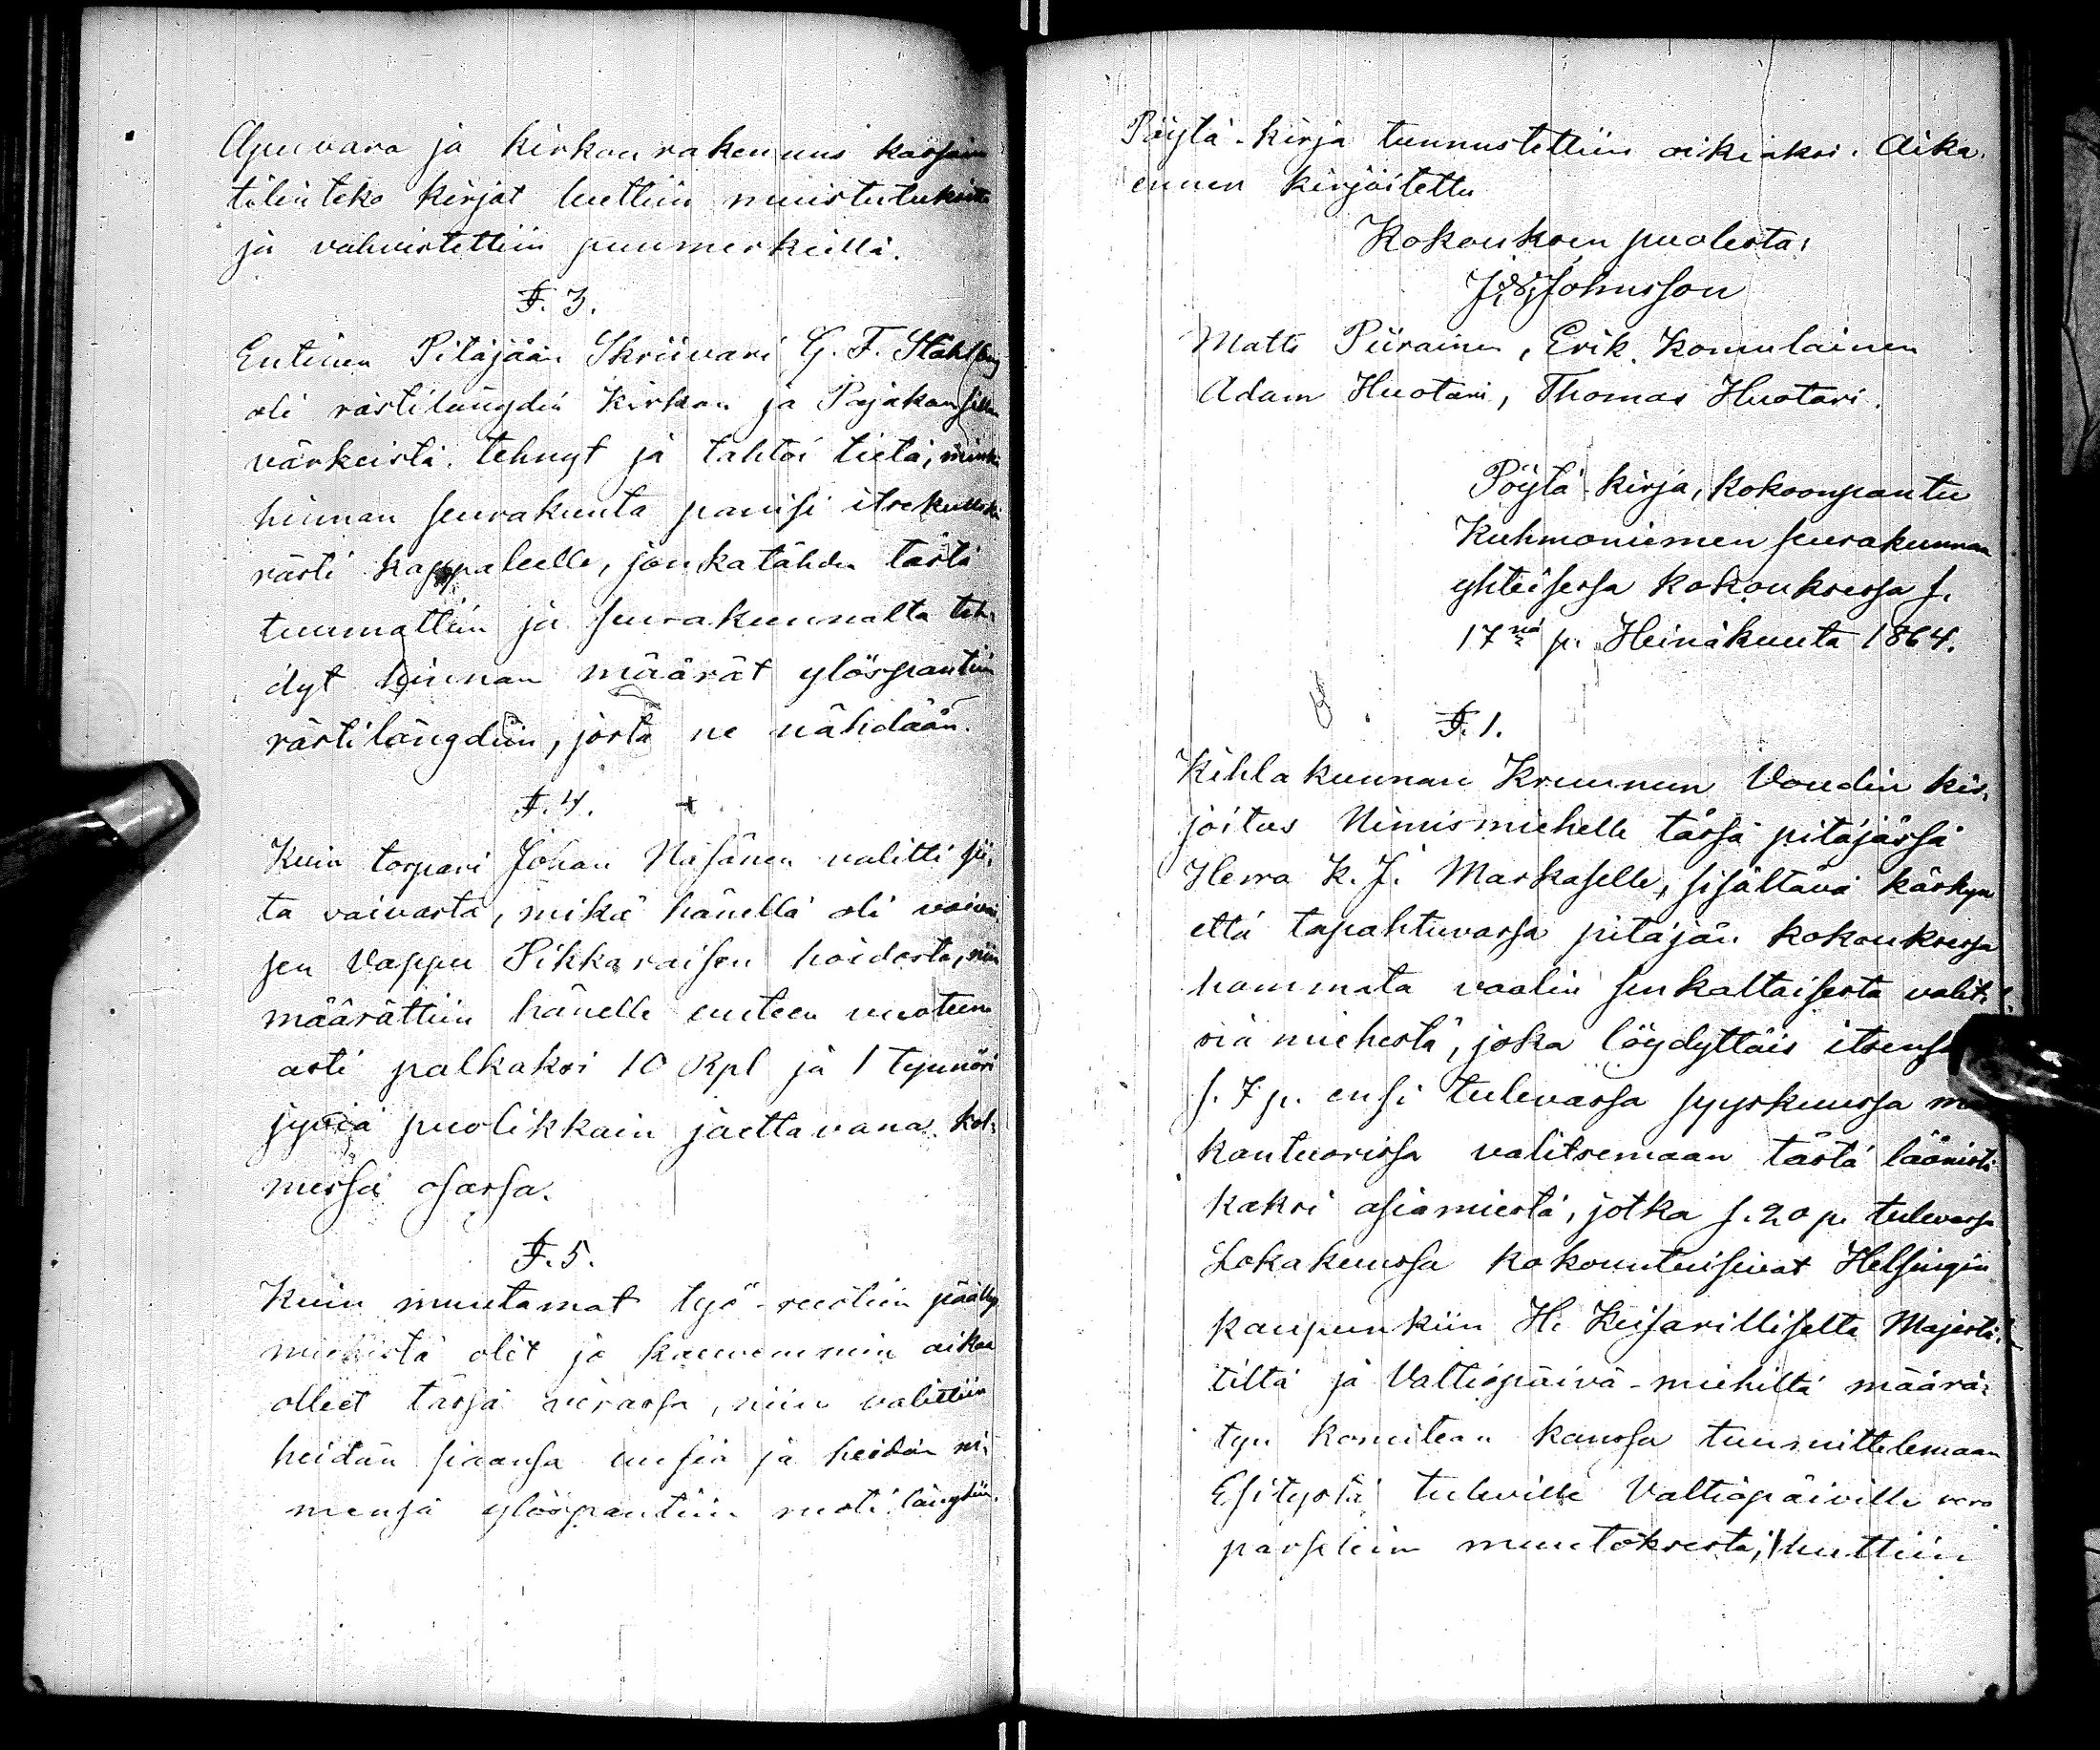 Apuvara ja kirkonrakennus kassain
tilinteko kirjat luettiin muistutuksitta
ja vahvistettiin puumerkeillä.
§. 3.
Entinen Pitäjään Skriivari G. F. Ståhlberg
oli rästilängdin Kirkon ja Pajakan sillan
värkeistä tehnyt ja tahtoi tietä, minkä
hinnan seurakunta panisi itsekullekin
rästi kappaleelle, jonkatähden tästä
tuumattiin ja seurakunnalta teh-
dyt hinnan määrät ylöspantiin
rästilängdiin, josta ne nähdään.
§. 4.
Kuin torpari Johan Näsänen valitti sii-
tä vaivasta, mikä hänellä oli vaivai-
sen Vappu Pikkaraisen hoidosta, niin
määrättiin hänelle uuteen vuoteen
asti palkaksi 10 Rpl ja 1 tynnöri
jyviä puolikkain jaettavana kol-
messa osassa.
§. 5.
Kuin muutamat työ-ruotiin päällys
miehistä olit jo kauvemmin aikaa
olleet tässä virassa, niin valittiin
heidän siaansa uusia ja heidän ni-
mensä ylöspantiin ruoti längdiin.
Pöytä-kirja tunnustettiin oikiaksi. Aika
ennen kirjoitettu
Kokouksen puolesta:
J. W. Johnsson
Matts Piirainen, Erik Komulainen
Adam Huotari, Thomas Huotari.
Pöytä-kirja, kokoonpantu
Kuhmoniemen seurakunnan
yhteisessä kokouksessa s.
17nä p. Heinäkuuta 1864.
§. 1.
Kihlakunnan Kruunun Voudin kir-
joitus Nimismiehelle tässä pitäjässä
Herra K. J. Markaselle, sisältävä käskyn
että tapahtuvassa pitäjän kokouksessa
hommata vaalin senkaltaisesta valit-
sia miehestä, joka löydyttäis itsensä
s. 7 p. ensi tulevassa syyskuussa
kontuorissa valitsemaan tästä läänistä
kaksi asiamiestä, jotka s. 20 p. tulevassa
Lokakuussa kokountuisivat Helsingin
kaupunkiin H. Keisarilliselta Majestä-
tiltä ja Valtiopäivä-miehiltä määrä-
tyn komitean kanssa tuumittelemaan
Esitystä tuleville Valtiopäiville vero
parselein muutoksesta, luettiin